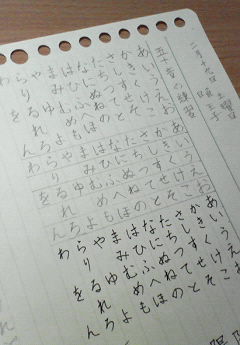 二月十九日 土曜日
五十音の練習
あいうえお
かきくけこ
さしすせそ
たちつてと
なにぬねの
はひふへほ
まみむめも
や ゆ よ
らりるれろ
わ を ん
あいうえお
かきくけこ
さしすせそ
たちつてと
なにぬねの
はひふへほ
まみむめも
や ゆ よ
らりるれろ
わ を ん
あいうえお
かきくけこ
さしすせそ
たちつてと
なにぬねの
はひふへほ
まみむめも
や ゆ よ
らりるれろ
わ を ん